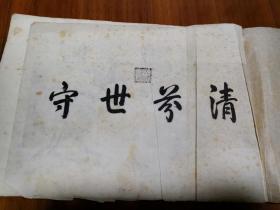 清芬世守